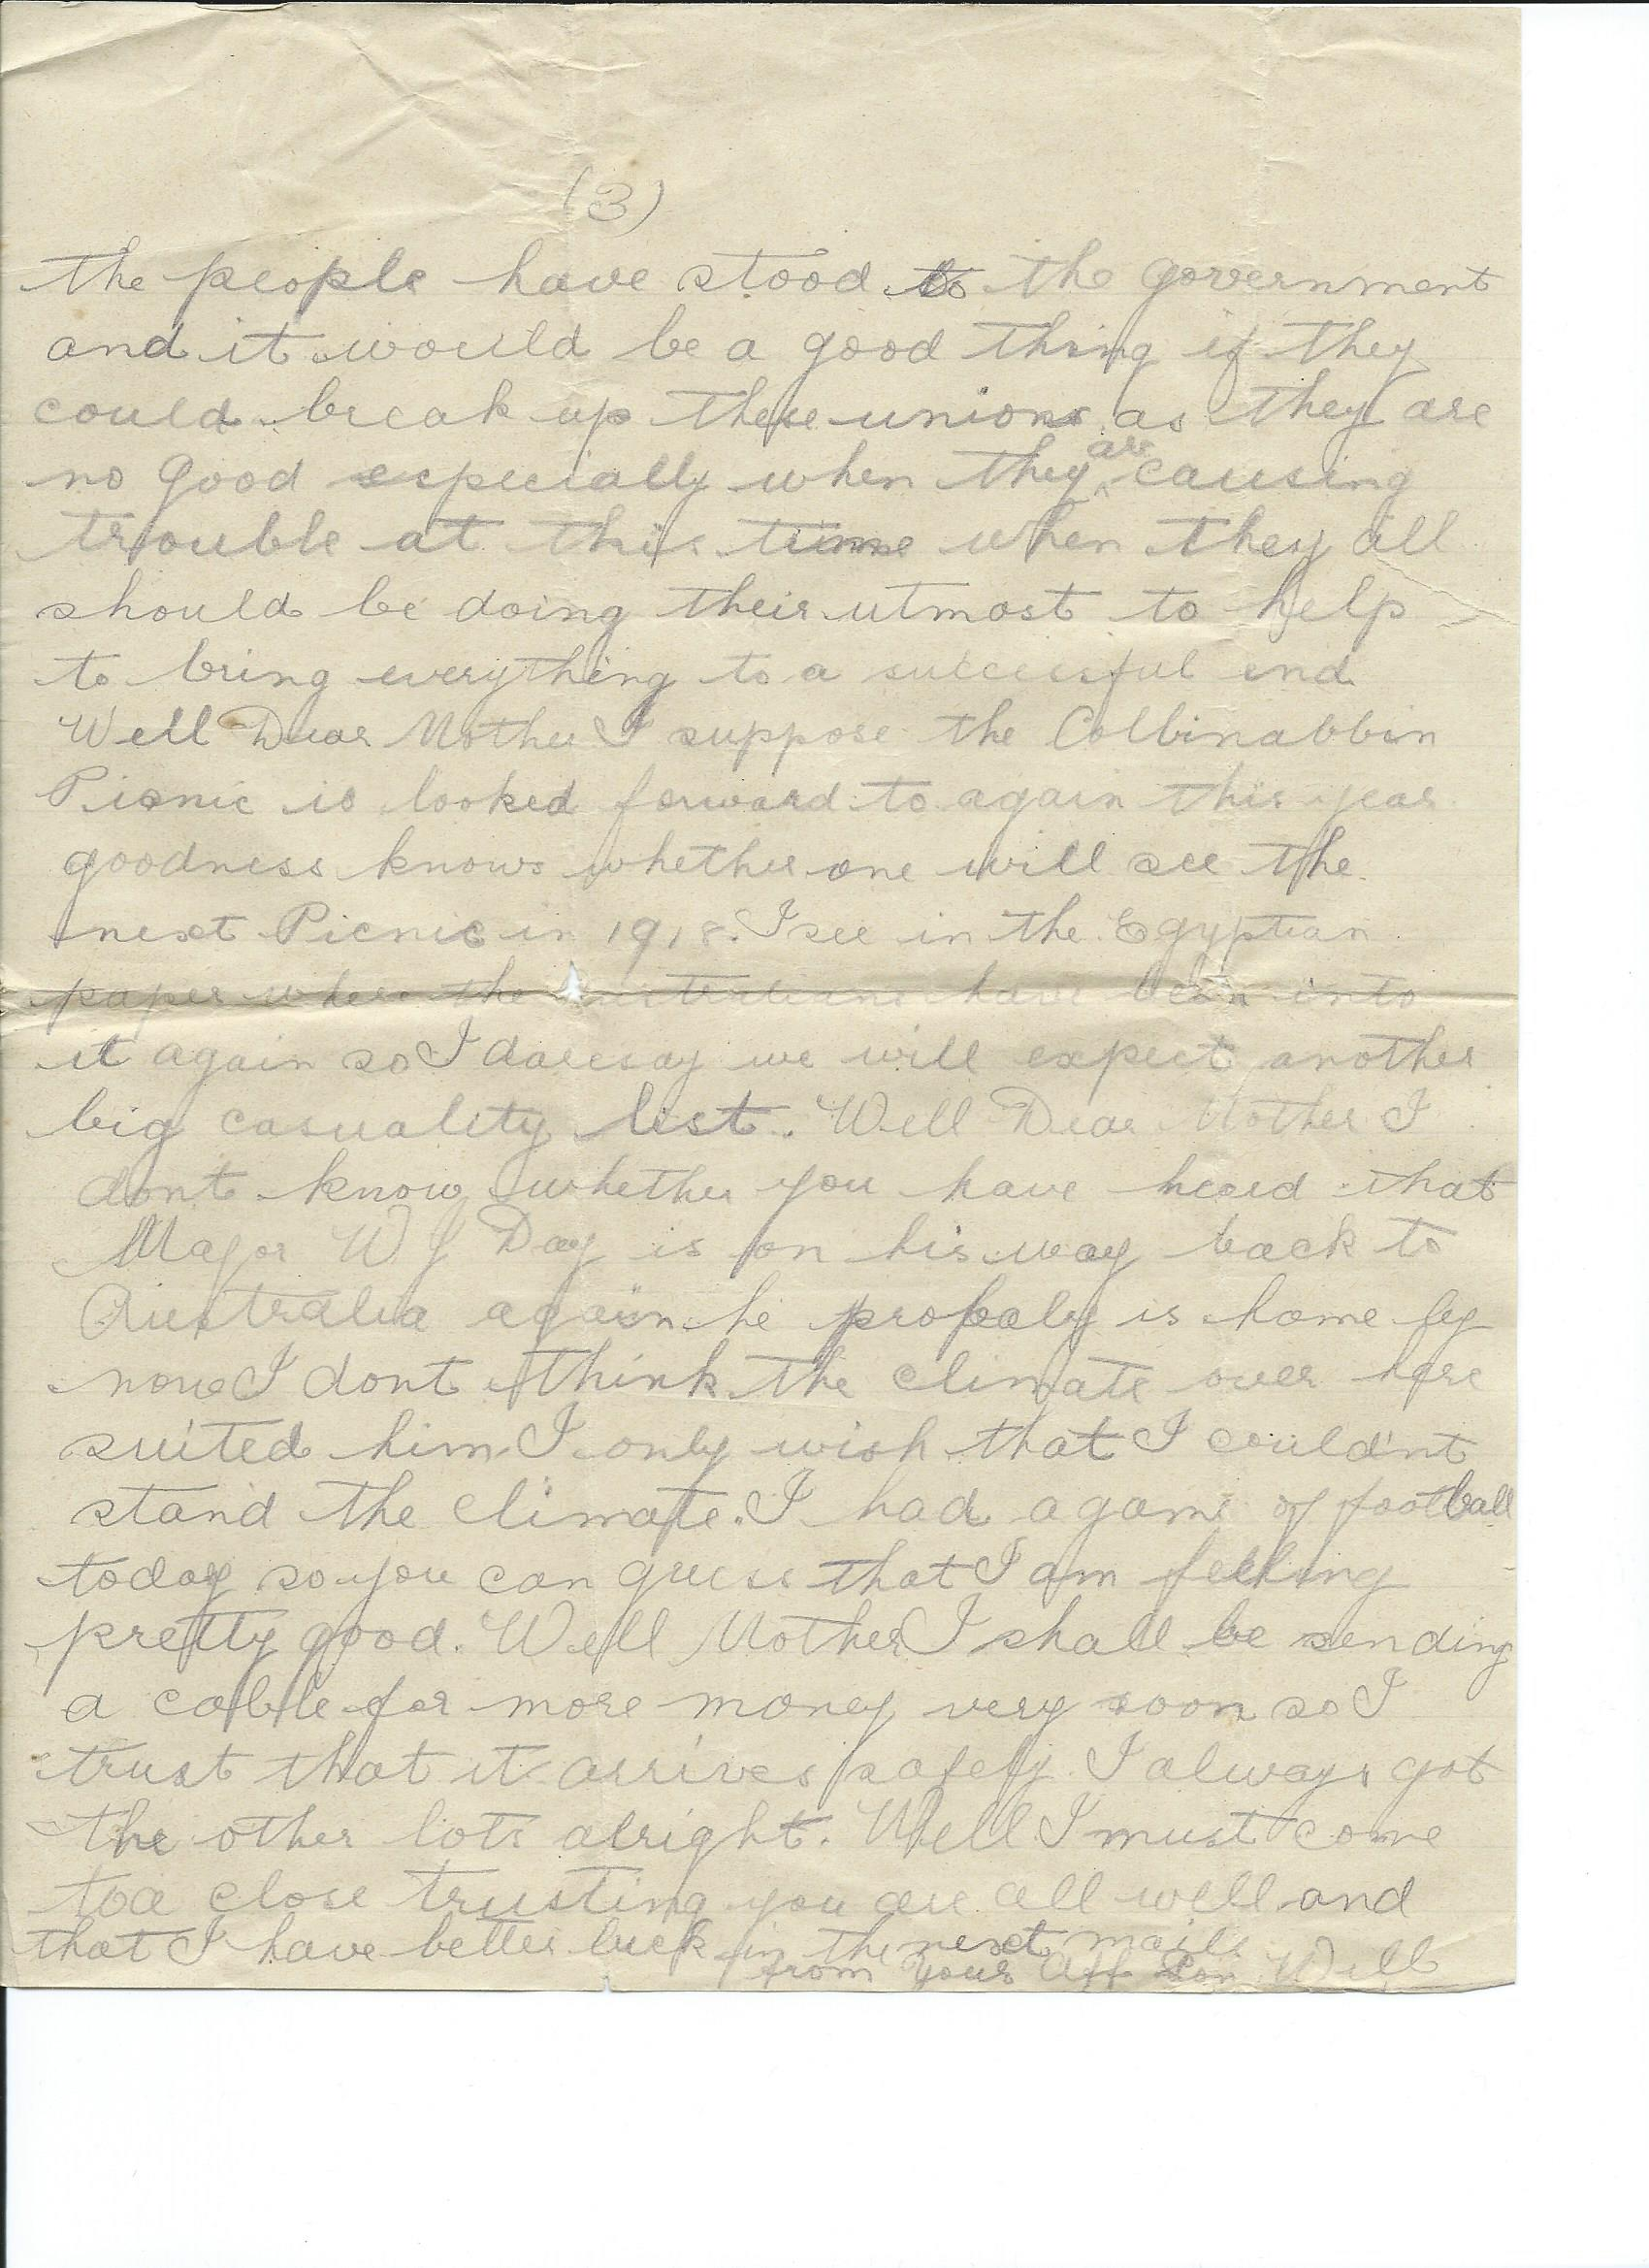 (3)
the people have stood to the government
and it would be a good thing if they
could break up these unions as they are
no good especially when they are causing
trouble at this time when they all
should be doing their utmost to help
to bring everything to a successful end
Well Dear Mother I suppose the Colbinabbin
Picnic is looked forward to again this year
goodness knows whether one will see the
next Picnic in 1918. I see in the Egyptian
paper where the Australians have been into
it again so I daresay we will expect another
big casuality list. Well Dear Mother I
dont know whether you have heard that
Major W J Day is on his way back to
Australia again he probaly is home by
now I dont think the climate over here
suited him I only wish that I could'nt
stand the climate. I had a game of football
today so you can guess that I am feeling
pretty good. Well Mother I shall be sending
a cable for more money very soon so I
trust that it arrives safely I always got
the other lots alright. Well I must come
too a close trusting you are all well and
that I have better luck in the next mails
from Your Aff Son Will